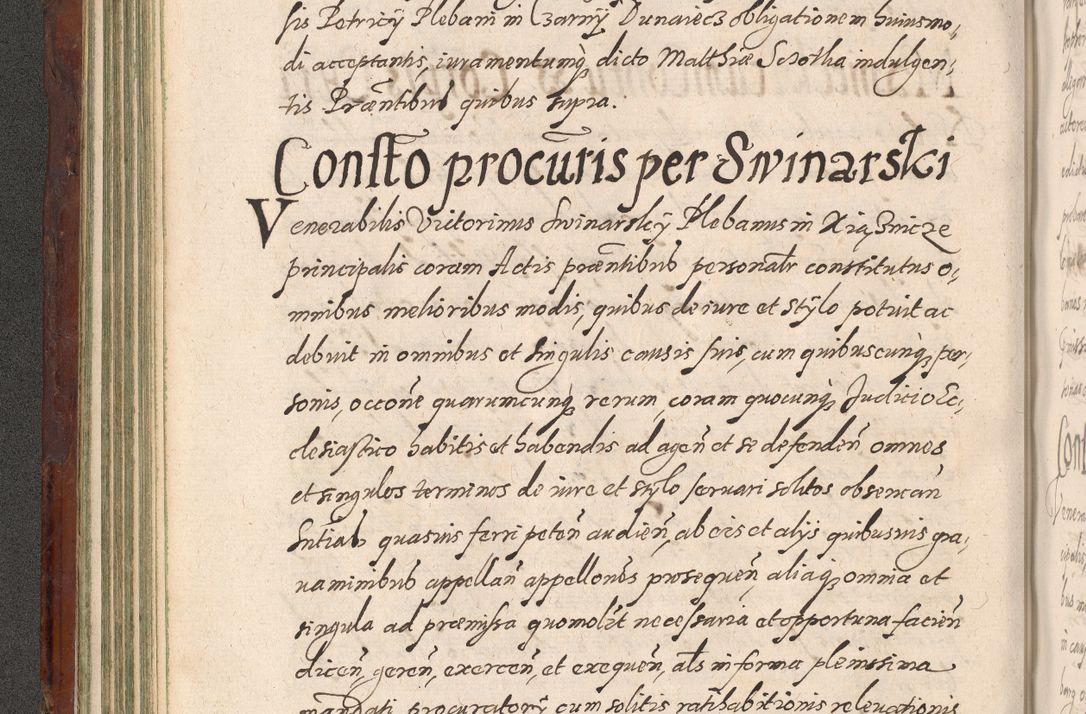 sis Petricÿ Plebani in Czarnÿ Dunaiecz obligationem huiusmo,
di acceptantis, iuramentumq̧ dicto Matthiæ Scrotha indulgen,
tis Præn̄tibus quibus supra.
Constto procūris per Swinarski
Venerabilis Victorinus Swinarskÿ Plebanus in Xiąznicze
principalis coram Actis præn̄tibus personalr constitutus o,
mnibus melioribus modis, quibus de iure et stÿlo potuit ac
debuit in omnibus et singulis causis suis, cum quibuscunq̧ per,
sonis, occōne quarumcunq̧ rerum, coram quocunq̧ Judicio Ec,
clesiastico habitis et habendis ad agen̄ et se defenden̄ omnes
et singulos terminos de iure et stÿlo seruari solitos obseruan̄
Sn̄tias quasuis ferri peten̄ audien̄, ab eis et alijs quibusuis gra,
uaminibus appellan̄ appellōnes prosequen̄, aliaq̧ omnia et
singula ad præmissa quomolt̄ necessaria et opportuna facien̄
dicen̄, geren̄, exercen̄, et exequen̄, als in forma plenissima
mandati procuratorÿ cum solitis ratihabitionis releuationis